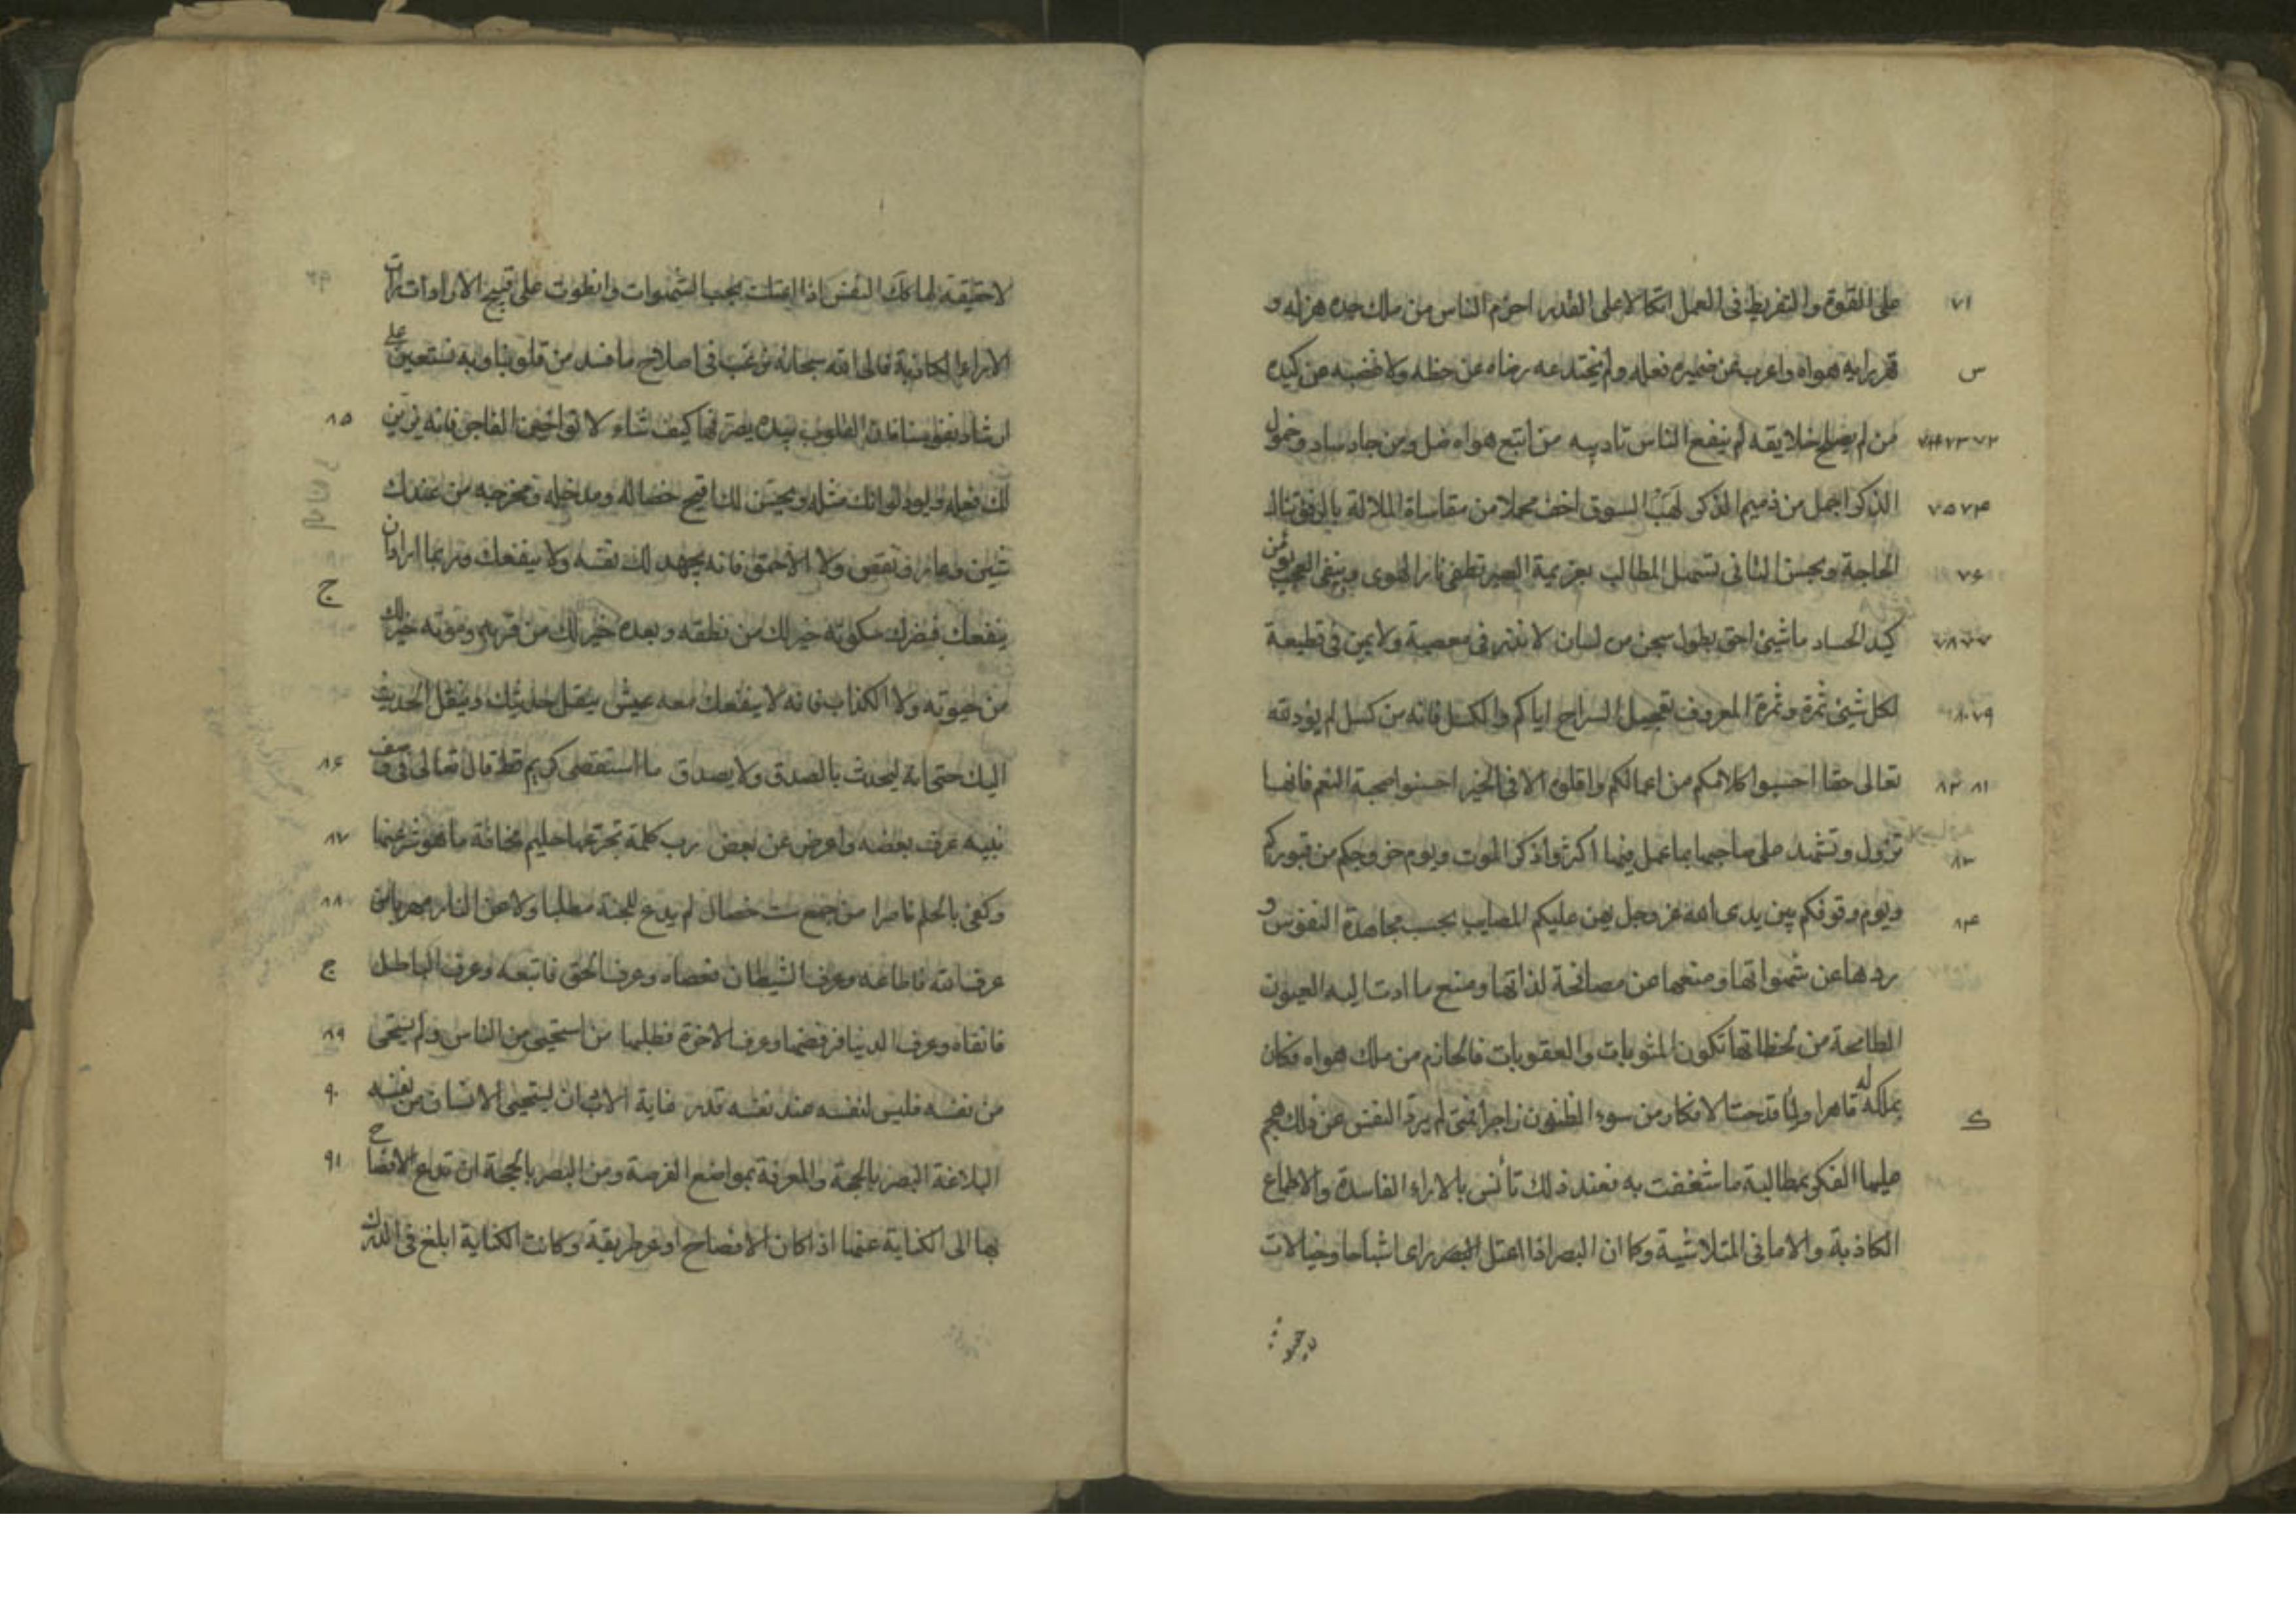 على القوة والتفريط فى العمل اتكالا على القدر احزم الناس من ملك جده هزله و
قهر رايه هواه واعرب عن ضميره فعله ولم يختدعه رضاه عن حظه ولا غضبه عن كيده
من لم يصلح خلايقه لم ينفع الناس تاديبه من اتبع هواه ضل ومن جاد ساد وخمول
الذكر اجمل من ذميم الذكر لهب الشوق اخف محملا من مقاساة الملالة بالرفق تنال
الحاجة وبحسن التانى تسهل المطالب بعزيمة الصبر تطفى نار الهوى وبنفى العجب يؤمن
كيد الحساد ما شيئ احق بطول سجن من لسان لا نذر فى معصية ولا يمين فى قطيعة
لكل شيئ ثمرة وثمرة المعروف تعجيل السراح اياكم والكسل فانه من كسل لم يؤد لله
تعالى حقا احسبوا كلامكم من اعمالكم واقلوه الا فى الخير احسنوا صحبة النعم فانها
تزول وتشهد على صاحبها بما عمل فيها اكثروا ذكر الموت ويوم خروجكم من قبوركم
ويوم وقوفكم بين يدى الله عز وجل يهن عليكم المصايب بحسب مجاهدة النفوس و
ردها عن شهواتها ومنعها عن مصافحة لذاتها ومنع ما ادت اليه العيون
الطامحة من لحظاتها تكون المثوبات والعقوبات فالحازم من ملك هواه فكان
بملكه له قاهرا ولما قدحت الافكار من سوء الظنون زاجرا فمتى لم يرد النفس عن ذلك هجم
عليها الفكر بمطالبة ما شغفت به فعند ذلك تأنس بالاراء الفاسدة والاطماع
الكاذبة والامانى المتلاشية وكما ان البصر اذا اعتل البصر راى اشباحا وخيالات
لا حقيقة لها كذلك النفس اذا اعتلت بحب الشهوات وانطوت على قبيح الارادات رات
الاراء الكاذبة فالى الله سبحانه نرغب فى اصلاح ما فسد من قلوبنا وبه نستعين على
ارشاد نفوسنا فان القلوب بيده يصرفها كيف شاء لا تواخين الفاجر فانه يزين
لك فعله ويود لو انك مثله ويحسن لك اقبح خصاله ومدخله ومخرجه من عندك
شين وعار ونقص ولا الاحمق فانه يجهد لك نفسه ولا ينفعك وربما اراد ان
ينفعك فيضرك سكوته خير لك من نطقه وبعده خير لك من قربه وموته خير لك
من حيوته ولا الكذاب فانه لا ينفعك معه عيش ينقل حديثك وينقل الحديث
اليك حتى انه ليحدث بالصدق ولا يصدق ما استقصى كريم قط قال تعالى فى وصف
نبيه عرف بعضه واعرض عن بعض رب كلمة تجرعها حليم مخافة ما هو شر منها
وكفى بالحلم ناصرا من جمع ست خصال لم يدع للجنة مطلبا ولا عن النار مهربا من
عرف الله فاطاعه وعرف الشيطان فعصاه وعرف الحق فاتبعه وعرف الباطل
فاتقاه وعرف الدنيا فرفضها وعرف الاخرة فطلبها من استحيى من الناس ولم يستحى
من نفسه فليس لنفسه عند نفسه قدر غاية الادب ان يستحيى الانسان من نفسه
البلاغة البصر بالحجة والمعرفة بمواضع الفرصة ومن البصر بالحجة ان تدع الافصاح
بها الى الكناية عنها اذا كان الافصاح اوعر طريقة وكانت الكناية ابلغ فى الدرك